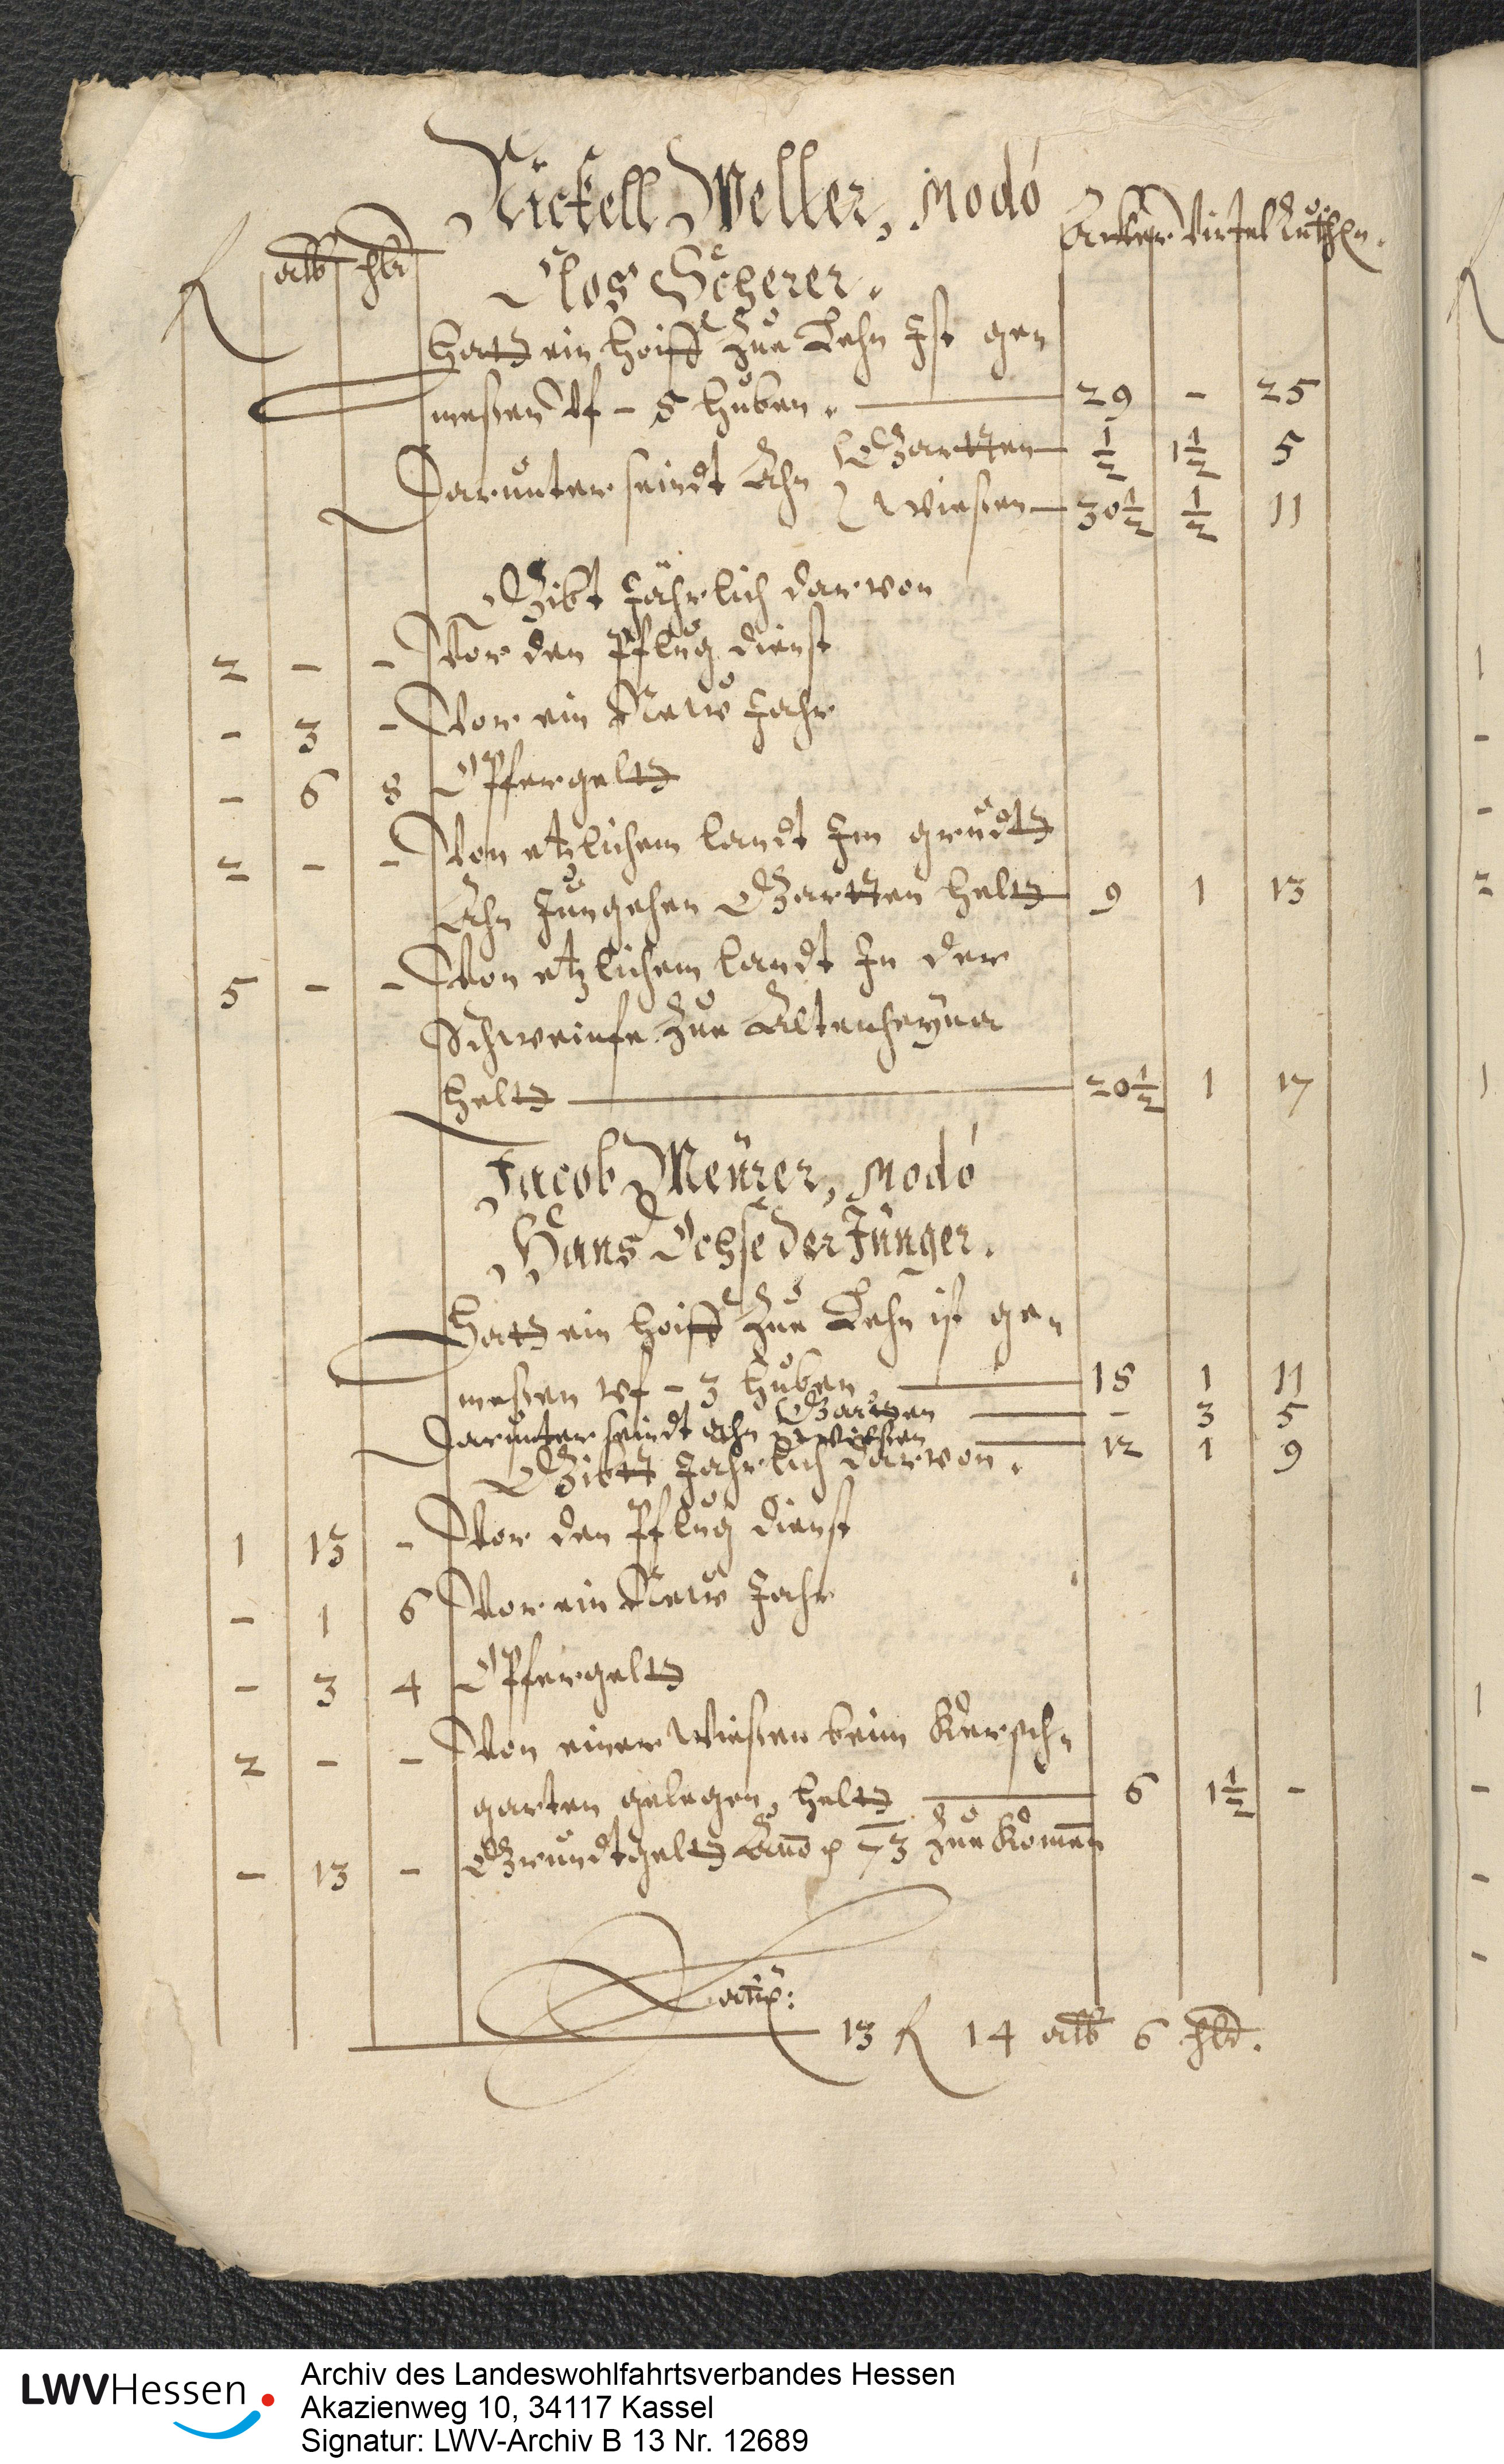 Nickell Weller, Modó
fl alb hlr Acker Virtel Ruthen.
Clos Scherer.
Hatt ein hoiff Zue Lehn Ist ge„
meßen vf - 8 huben. 29 - 25
Darunter seindt Ahn Gartten ½ 1½ 5
Wiesen 30½ ½ 11
Gibt Jährlich darvon
2 - - Vor den Pflug dienst
- 3 - Vor ein New Jahr
- 6 8 Opfergeltt
2 - - Von etzlichem landt Im
Ahn Gartten heltt 9 1 13
5 - - Von etzlichem landt In der
Schweinfe Zue Altenheyna
heltt 20½ 1 17
Jacob Meurer, Modó
Hans Ochse der Jünger.
Hatt ein hoiff Zue Lehn ist ge„
meßen vf - 3 huben. 18 1 11
Darunter seindt ahn Gartten - 3 5
Wiesen 12 1 9
Gibtt Jahrlich darvon.
1 15 - Vor den Pflug dienst
- 1 6 Vor ein New Jahr
- 3 4 Opfergeltt
2 - - Von einer Wiesen beim Kersch„
garten gelegen, heltt 6 1½ -
- 13 - Grundtgeltt Anno p 73 Zue Komen
Latus:
13 fl 14 alb 6 hlr.
LWVHessen
Archiv des Landeswohlfahrtsverbandes Hessen
Akazienweg 10, 34117 Kassel
Signatur: LWV-Archiv B 13 Nr. 12689